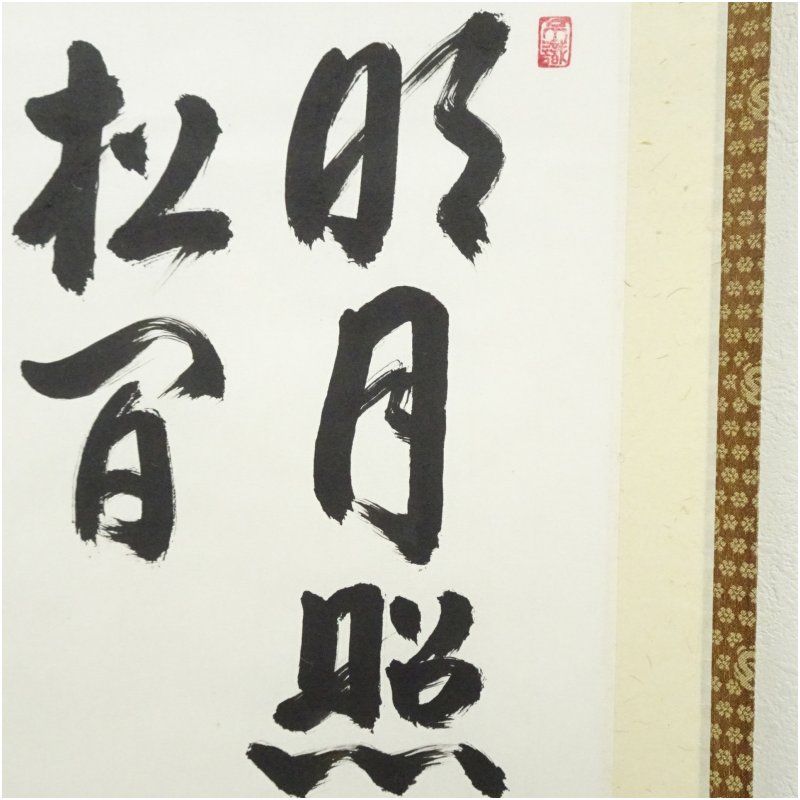 明月照
松間